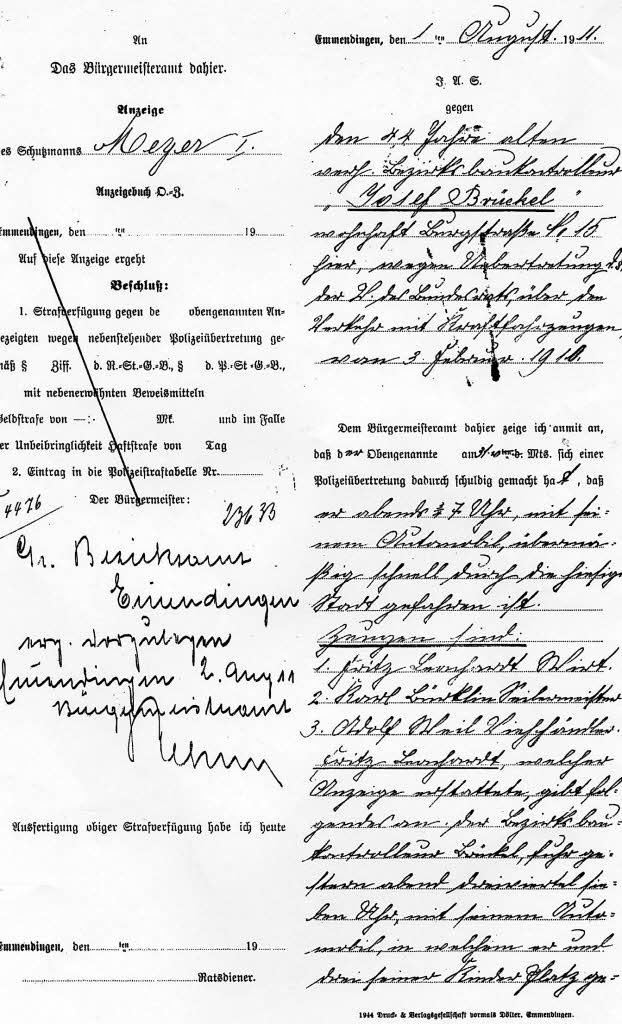 An
Das Bürgermeisteramt dahier.
Anzeige
es Schutzmanns Meyer I.
Anzeigebuch O.-Z.
Emmendingen, den ten 19
Auf diese Anzeige ergeht
Beschluß:
1. Strafverfügung gegen de obengenannten An-
gezeigten wegen nebenstehender Polizeiübertretung ge-
mäß § Ziff. d. R.-St.-G.-B., § d. P.-St.-G.-B.,
mit nebenerwähnten Beweismitteln
Geldstrafe von —:- Mk. und im Falle
er Unbeibringlichkeit Haftstrafe von Tag
2. Eintrag in die Polizeistraftabelle Nr.
Der Bürgermeister:
4476
23633
Gr. Bezirksamt
Emmendingen
erg. vorzulegen
Emmendingen 2. Aug 11
Bürgermeisteramt
Ausfertigung obiger Strafverfügung habe ich heute
Emmendingen, den ten 19
Ratsdiener.
Emmendingen, den 1 ten August. 1911.
J. A. S.
gegen
den 44 Jahre alten
verh. Bezirksbaukontrolleur
" Josef Brückel "
wohnhaft Burgstraße No 15
hier, wegen Uebertretung d. §
der V. des Bundesrats, über den
Verkehr mit Kraftfahrzeugen,
vom 3. Februar. 1910.
Dem Bürgermeisteramt dahier zeige ich anmit an,
daß der Obengenannte am 31. v. Mts. sich einer
Polizeiübertretung dadurch schuldig gemacht hat, daß
er abends ¾ 7 Uhr, mit sei-
nem Automobil, übermä-
ßig schnell, durch die hiesige
Stadt gefahren ist.
Zeugen sind:
1. Fritz Leonhardt Wirt.
2. Karl Bürklin Seilermeister
3. Adolf Weil Viehhändler.
Fritz Leonhardt, welcher
Anzeige erstattete, gibt fol-
gendes an: der Bezirksbau-
kontrolleur Brückel, fuhr ge-
stern abend dreiviertel sie-
ben Uhr, mit seinem Auto-
mobil, in welchem er und
drei seiner Kinder Platz ge-
1944 Druck- & Verlagsgesellschaft vormals Dölter, Emmendingen.